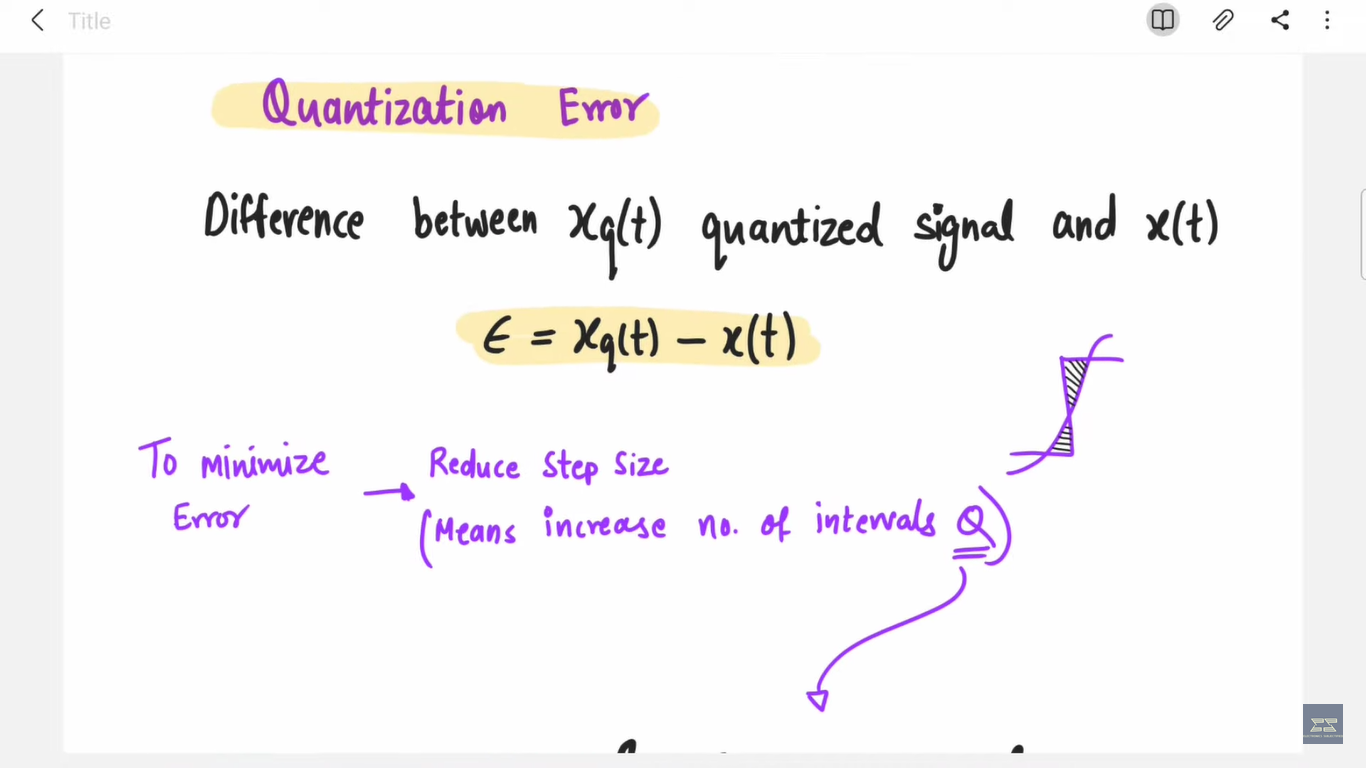 Title
Quantization Error
Difference between xq(t) quantized signal and x(t)
ϵ = xq(t) − x(t)
To minimize Error
→ Reduce Step Size
(Means increase no. of intervals Q)